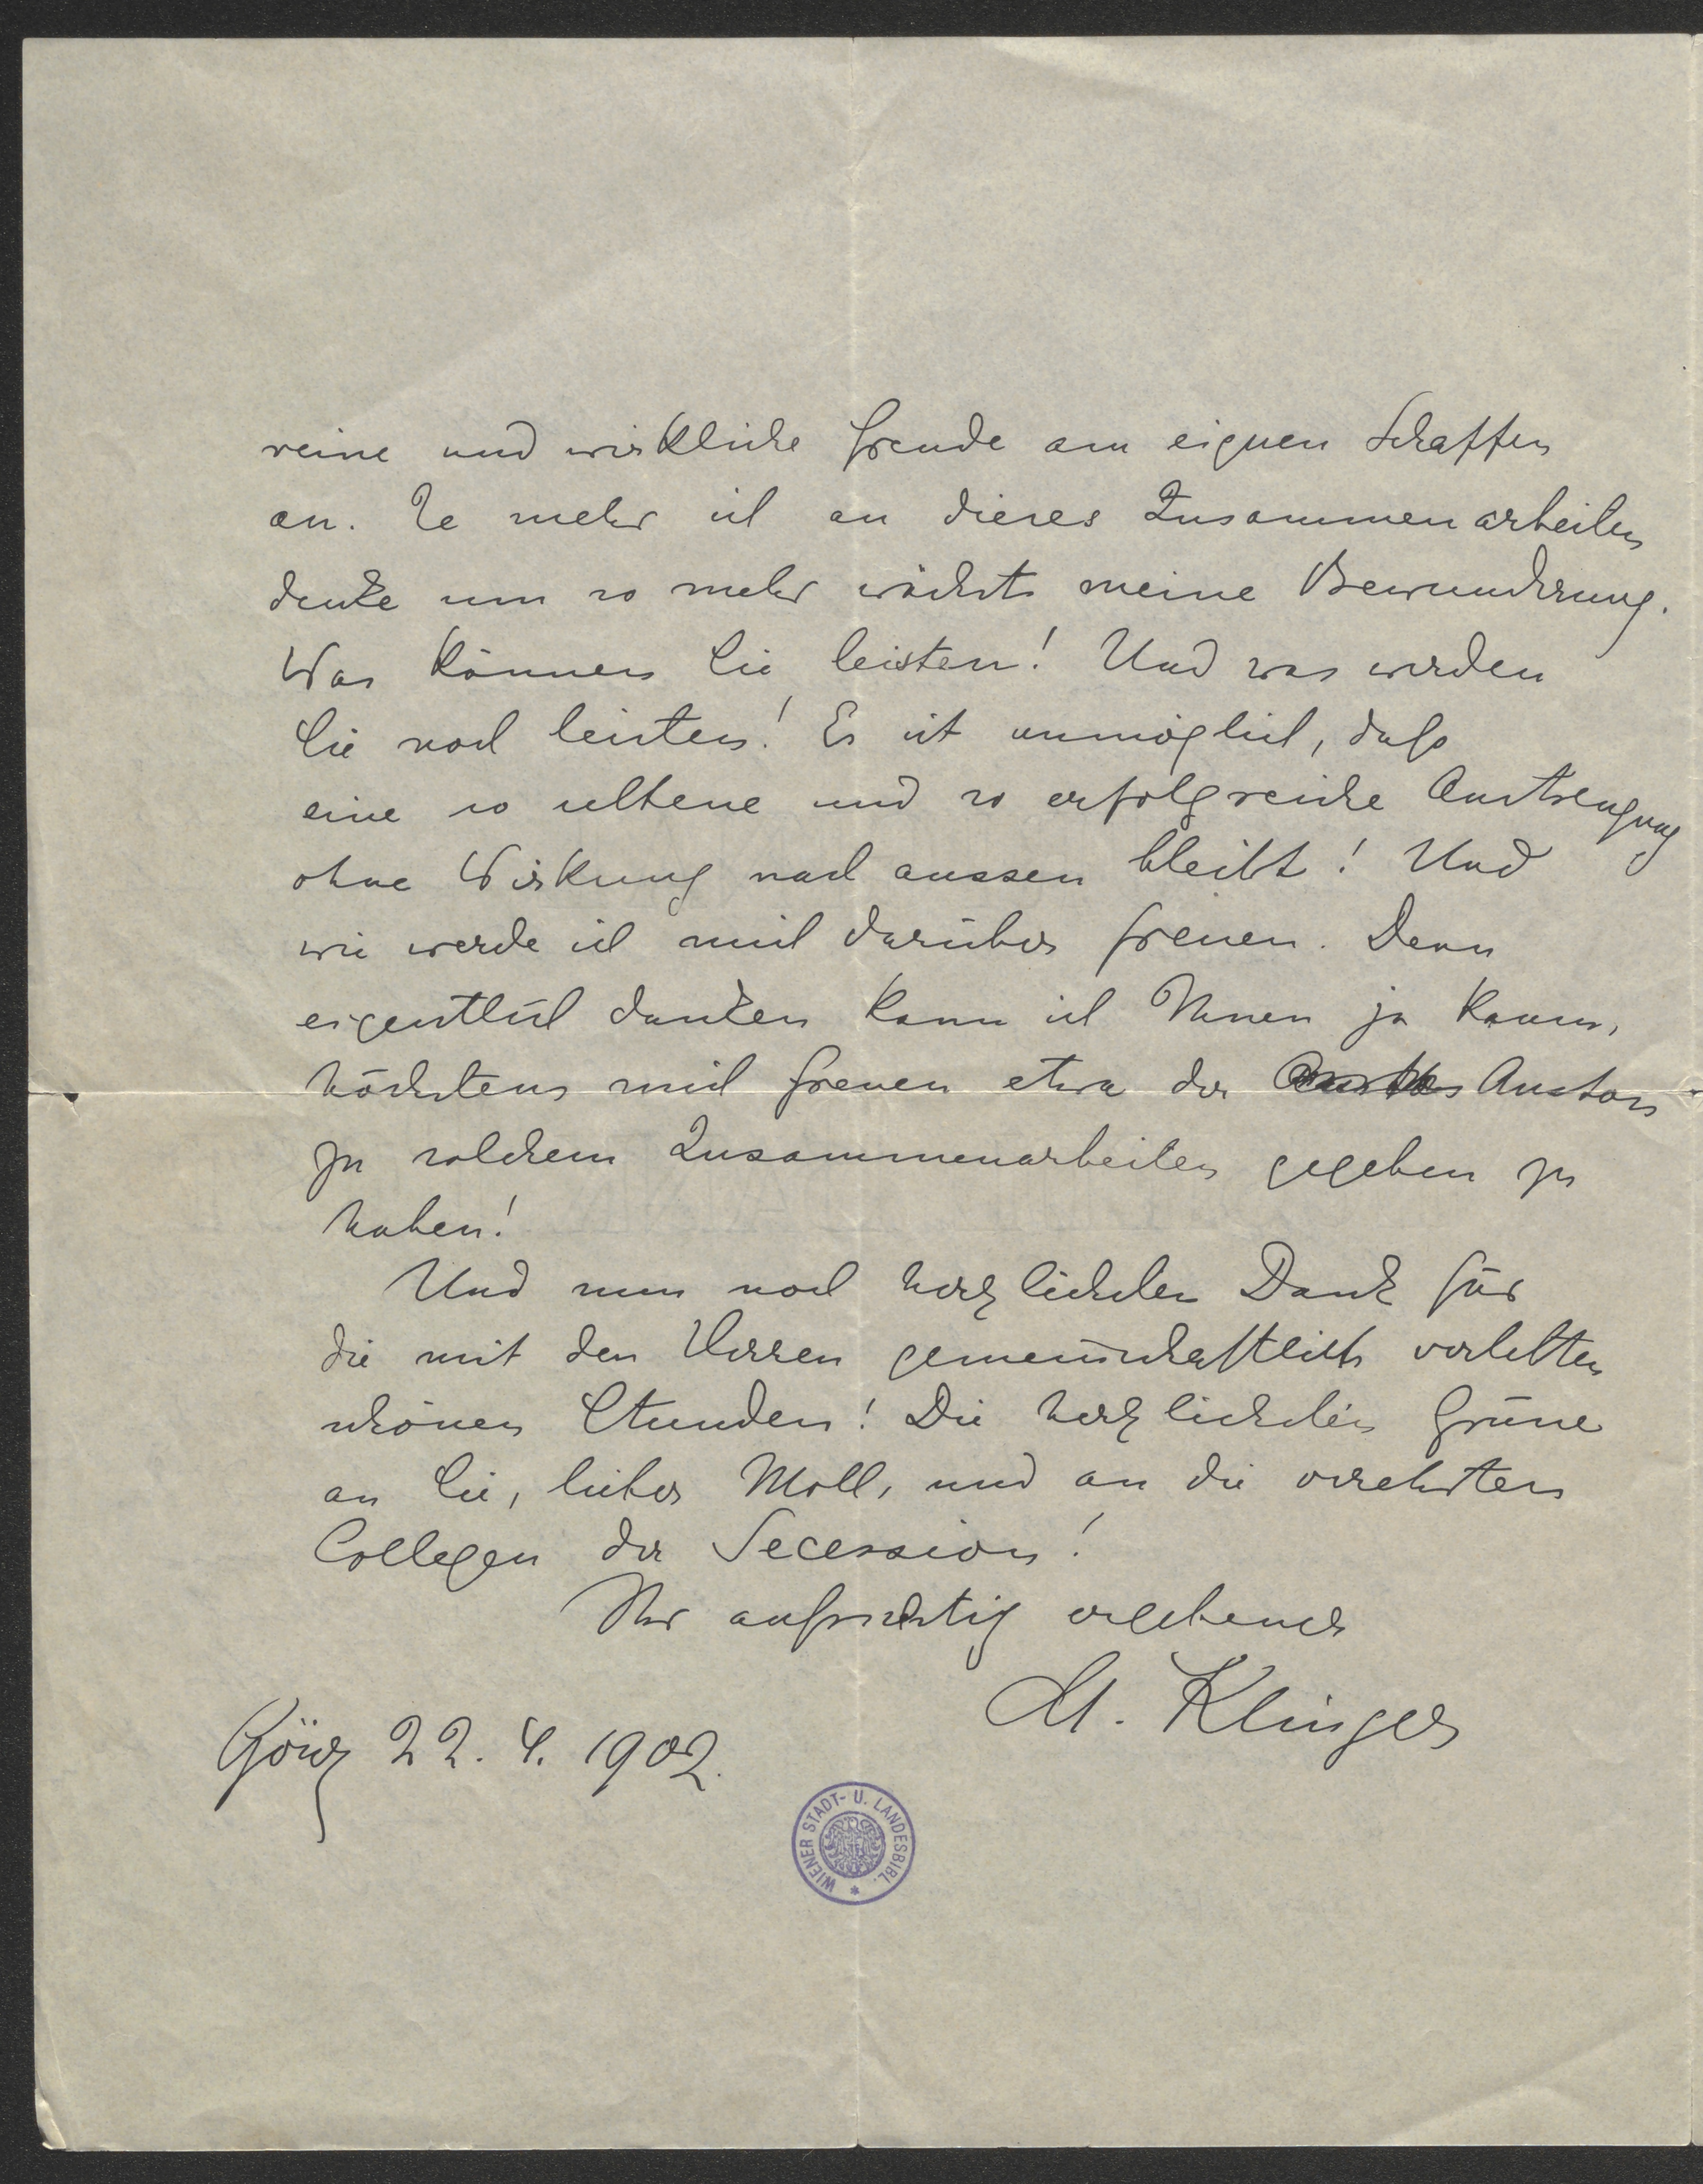 reine und wirkliche Freude am eignen Schaffen
an. Je mehr ich an dieses Zusammenarbeiten
denke um so mehr wächst meine Bewunderung.
Was können Sie leisten! Und was werden
Sie noch leisten! Es ist unmöglich, daß
eine so seltene und so erfolgreiche Anstrengung
ohne Wirkung nach aussen bleibt! Und
wie werde ich mich darüber freuen. Denn
eigentlich danken kann ich Ihnen ja kaum,
höchstens mich freuen etwa der Anstoss
zu solchem Zusammenarbeiten gegeben zu
haben!
Und nun noch herzlichsten Dank für
die mit den Herren gemeinschaftlich verlebten
schönen Stunden! Die herzlichsten Grüsse
an Sie, lieber Moll, und an die verehrten
Collegen der Secession!
Ihr aufrichtig ergebener
M. Klinger
Görz 22. 4. 1902.
WIENER STADT- U. LANDESBIBL.